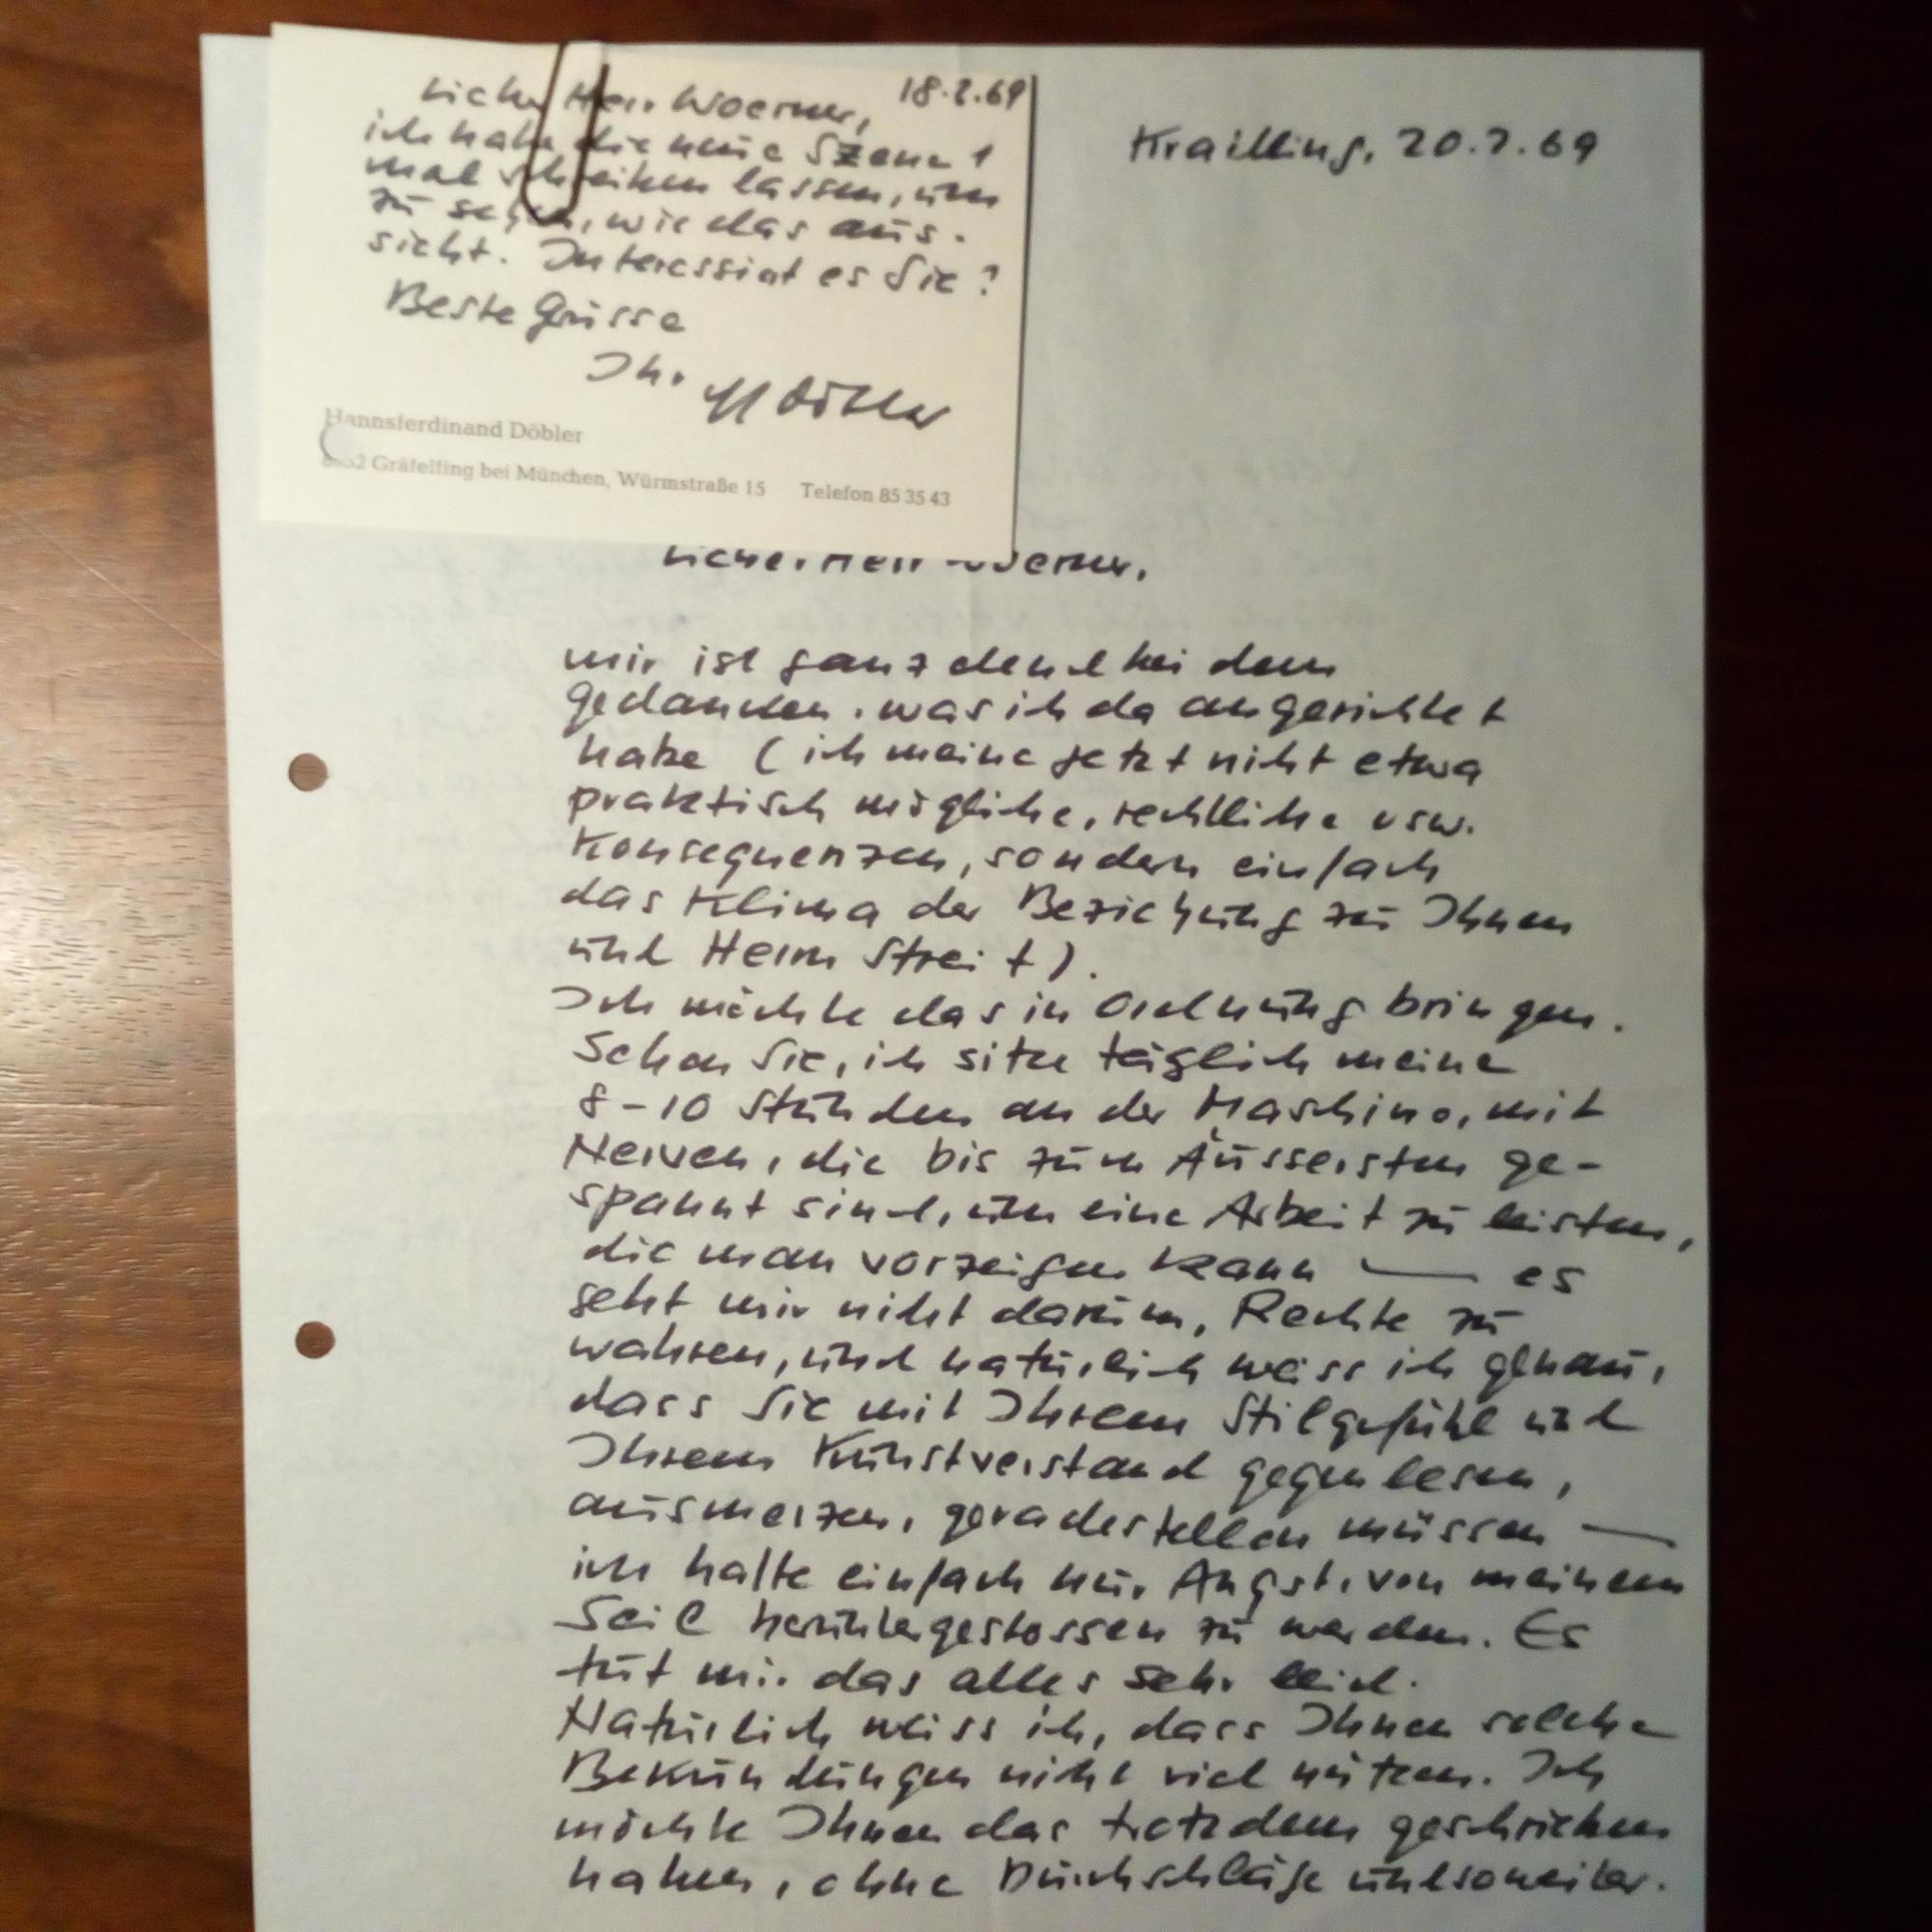 18.2.69
Lieber Herr Woerner,
ich habe die neue Szene 1
mal schreiben lassen, um
zu sehen, wie das aus-
sieht. Interessiert es Sie?
Beste Grüsse
Ihr HF Döbler
Hannsferdinand Döbler
8032 Gräfelfing bei München, Würmstraße 15 Telefon 85 35 43
Krailling, 20.2.69
Lieber Herr Woerner,
mir ist ganz elend bei dem
Gedanken, was ich da angerichtet
habe (ich meine jetzt nicht etwa
praktisch mögliche, rechtliche usw.
Konsequenzen, sondern einfach
das Klima der Beziehung zu Ihnen
und Herrn Streit).
Ich möchte das in Ordnung bringen.
Sehen Sie, ich sitze täglich meine
8-10 Stunden an der Maschine, mit
Nerven, die bis zum Äussersten ge-
spannt sind, um eine Arbeit zu leisten,
die man vorzeigen kann — es
geht mir nicht darum, Rechte zu
wahren, und natürlich weiss ich genau,
dass Sie mit Ihrem Stilgefühl und
Ihrem Kunstverstand gegenlesen,
ausmerzen, geradestellen müssen —
ich hatte einfach nur Angst, von meinem
Seil heruntergestossen zu werden. Es
tut mir das alles sehr leid.
Natürlich weiss ich, dass Ihnen solche
Bekundungen nicht viel nützen. Ich
möchte Ihnen das trotzdem geschrieben
haben, ohne Durchschläge undsoweiter.